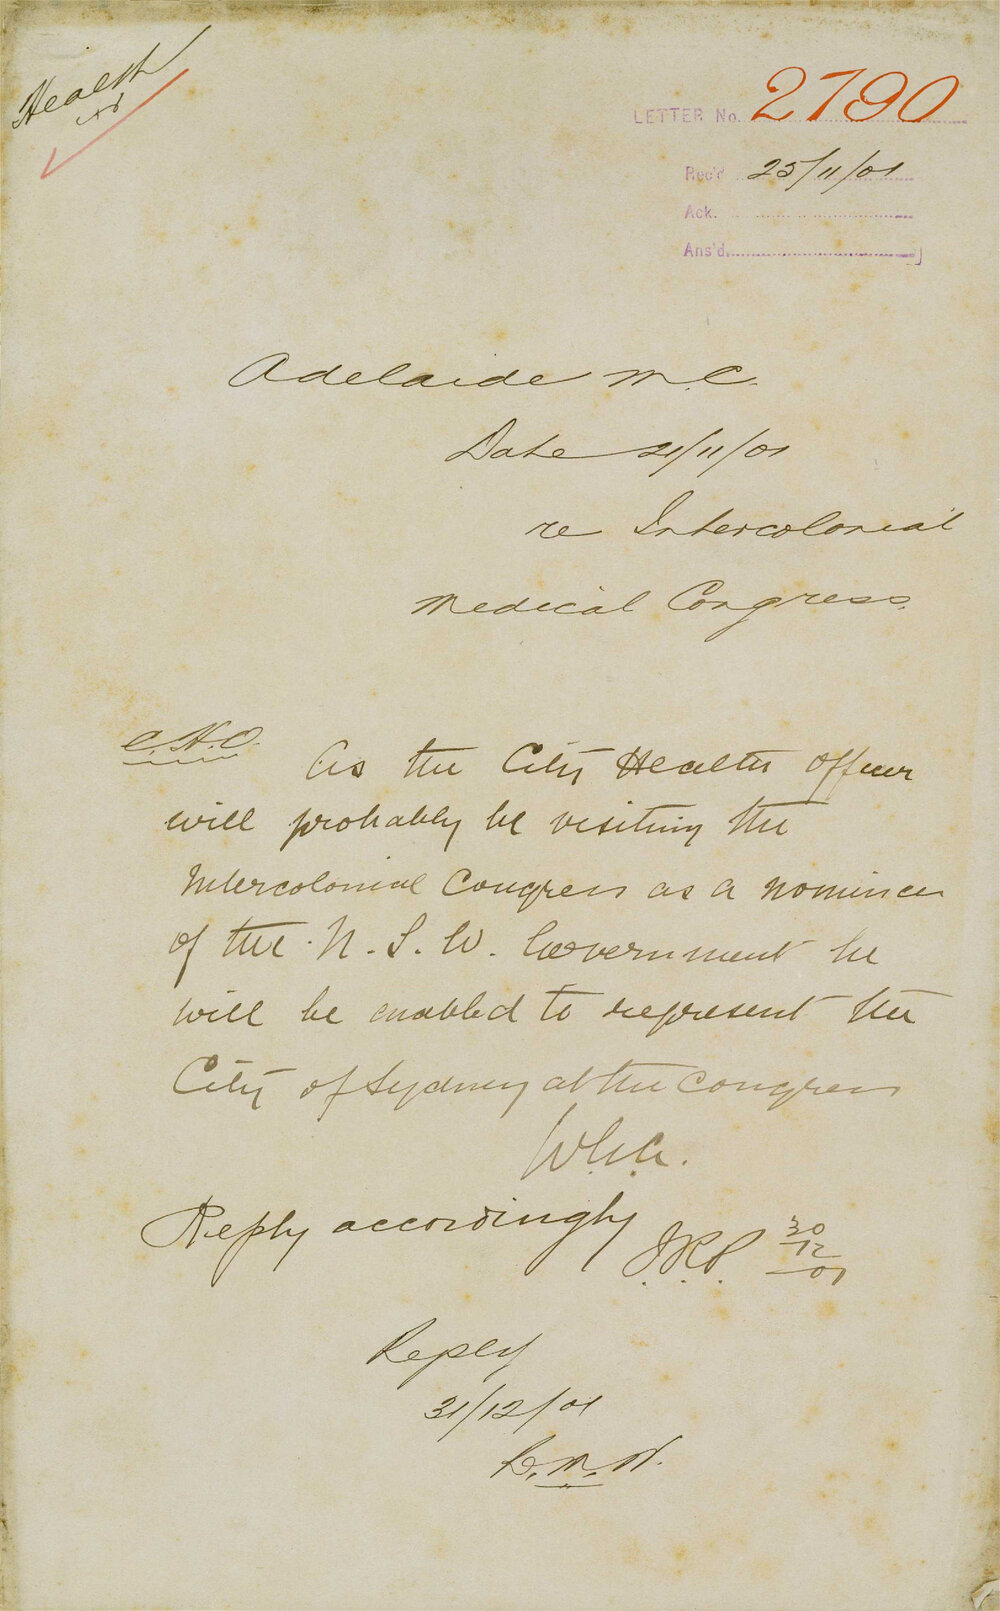 Health
LETTER No. 2790
Rec'd 25/11/01
Ack.
Ans'd
Adelaide M.C.
Date 21/11/01
re Intercolonial
Medical Congress.
C.H.O.
As the City Health Officer
will probably be visiting the
Intercolonial Congress as a nominee
of the N.S.W. Government he
will be enabled to represent the
City of Sydney at the Congress
W.G.A.
Reply accordingly
J.R.P. 30/12/01
Reply
31/12/01